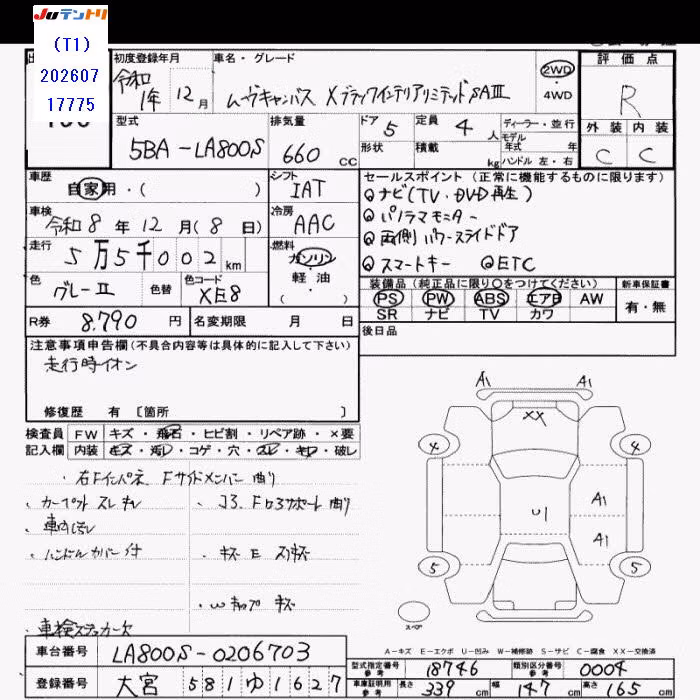 JUテントリ
(T1)
202607
17775
初度登録年月
令和1年12月
車名・グレード
ムーヴキャンバス XブラックインテリアリミテッドSAⅢ
2WD
・4WD
評価点
R
外装 内装
C C
型式
5BA-LA800S
排気量
660 CC
ドア 5
形状
定員 4 人
積載 kg
ディーラー・並行
モデル
年式 年
ハンドル 左・右
車歴
自家用・( )
シフト
IAT
セールスポイント(正常に機能するものに限ります)
ナビ(TV・DVD再生)
パノラマモニター
両側パワースライドドア
スマートキー ETC
車検
令和8年12月(8日)
冷房
AAC
走行
5万5千002km
燃料
ガソリン
軽油
・( )
色
グレーII
色替
色コード
XE8
装備品(純正品に限り○をつけてください)
PS PW ABS エアB AW
SR ナビ TV カワ
新車保証書
有・無
R券 8,790 円
名変期限 月 日
後日品
注意事項申告欄(不具合内容等は具体的に記入して下さい)
走行時イオン
修復歴 有 〔箇所 〕
検査員
記入欄
FW キズ・飛石・ヒビ割・リペア跡・×要
内装 キズ・汚レ・コゲ・穴・スレ・キレ・破レ
・右Fインパネ、Fサイドメンバー曲り
・カーペットスレキレ
・コS、Fロアサポート曲り
・ハンドルカバー付
・キズ E スリキズ
・Wキャップ キズ
・車検ステッカー欠
A1 A1
XX
4 4
A1
U1
A1
5 5
スペア
A-キズ E-エクボ U-凹み W-補修跡 S-サビ C-腐食 XX-交換済
車台番号 LA800S-0206703
登録番号 大宮 581 ゆ 1627
型式指定番号
参考 18746
類別区分番号
参考 0004
車庫証明用
参考 長さ 339 cm 幅 147 cm 高さ 165 cm